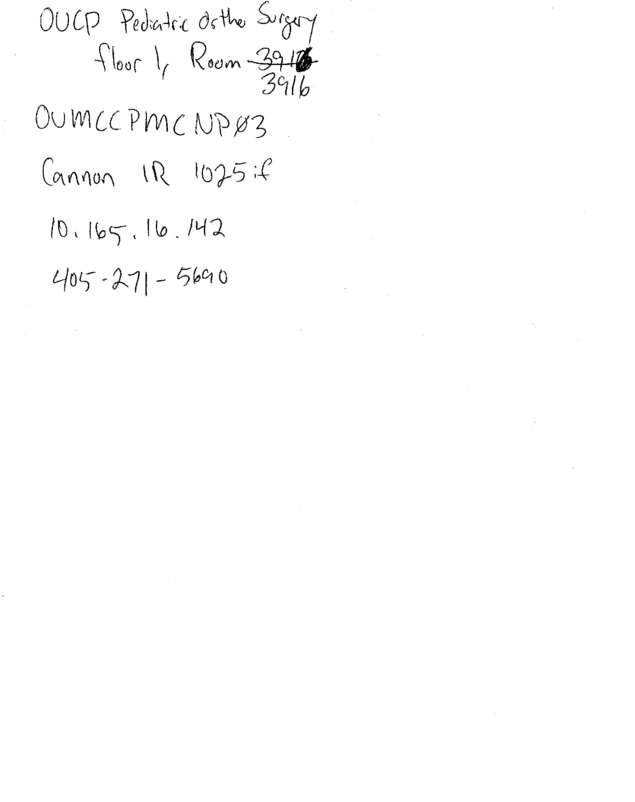 OUCP Pediatric Ortho Surgery
floor 1, Room
3916
OUMCCPMCNP03
Cannon IR 1025if
10.165.16.142
405-271-5690